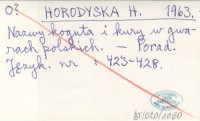 O? HORODYSKA H. 1963.
Nazwy koguta i kury w gwa-
rach polskich. — Porad.
Język. nr : 423-428.